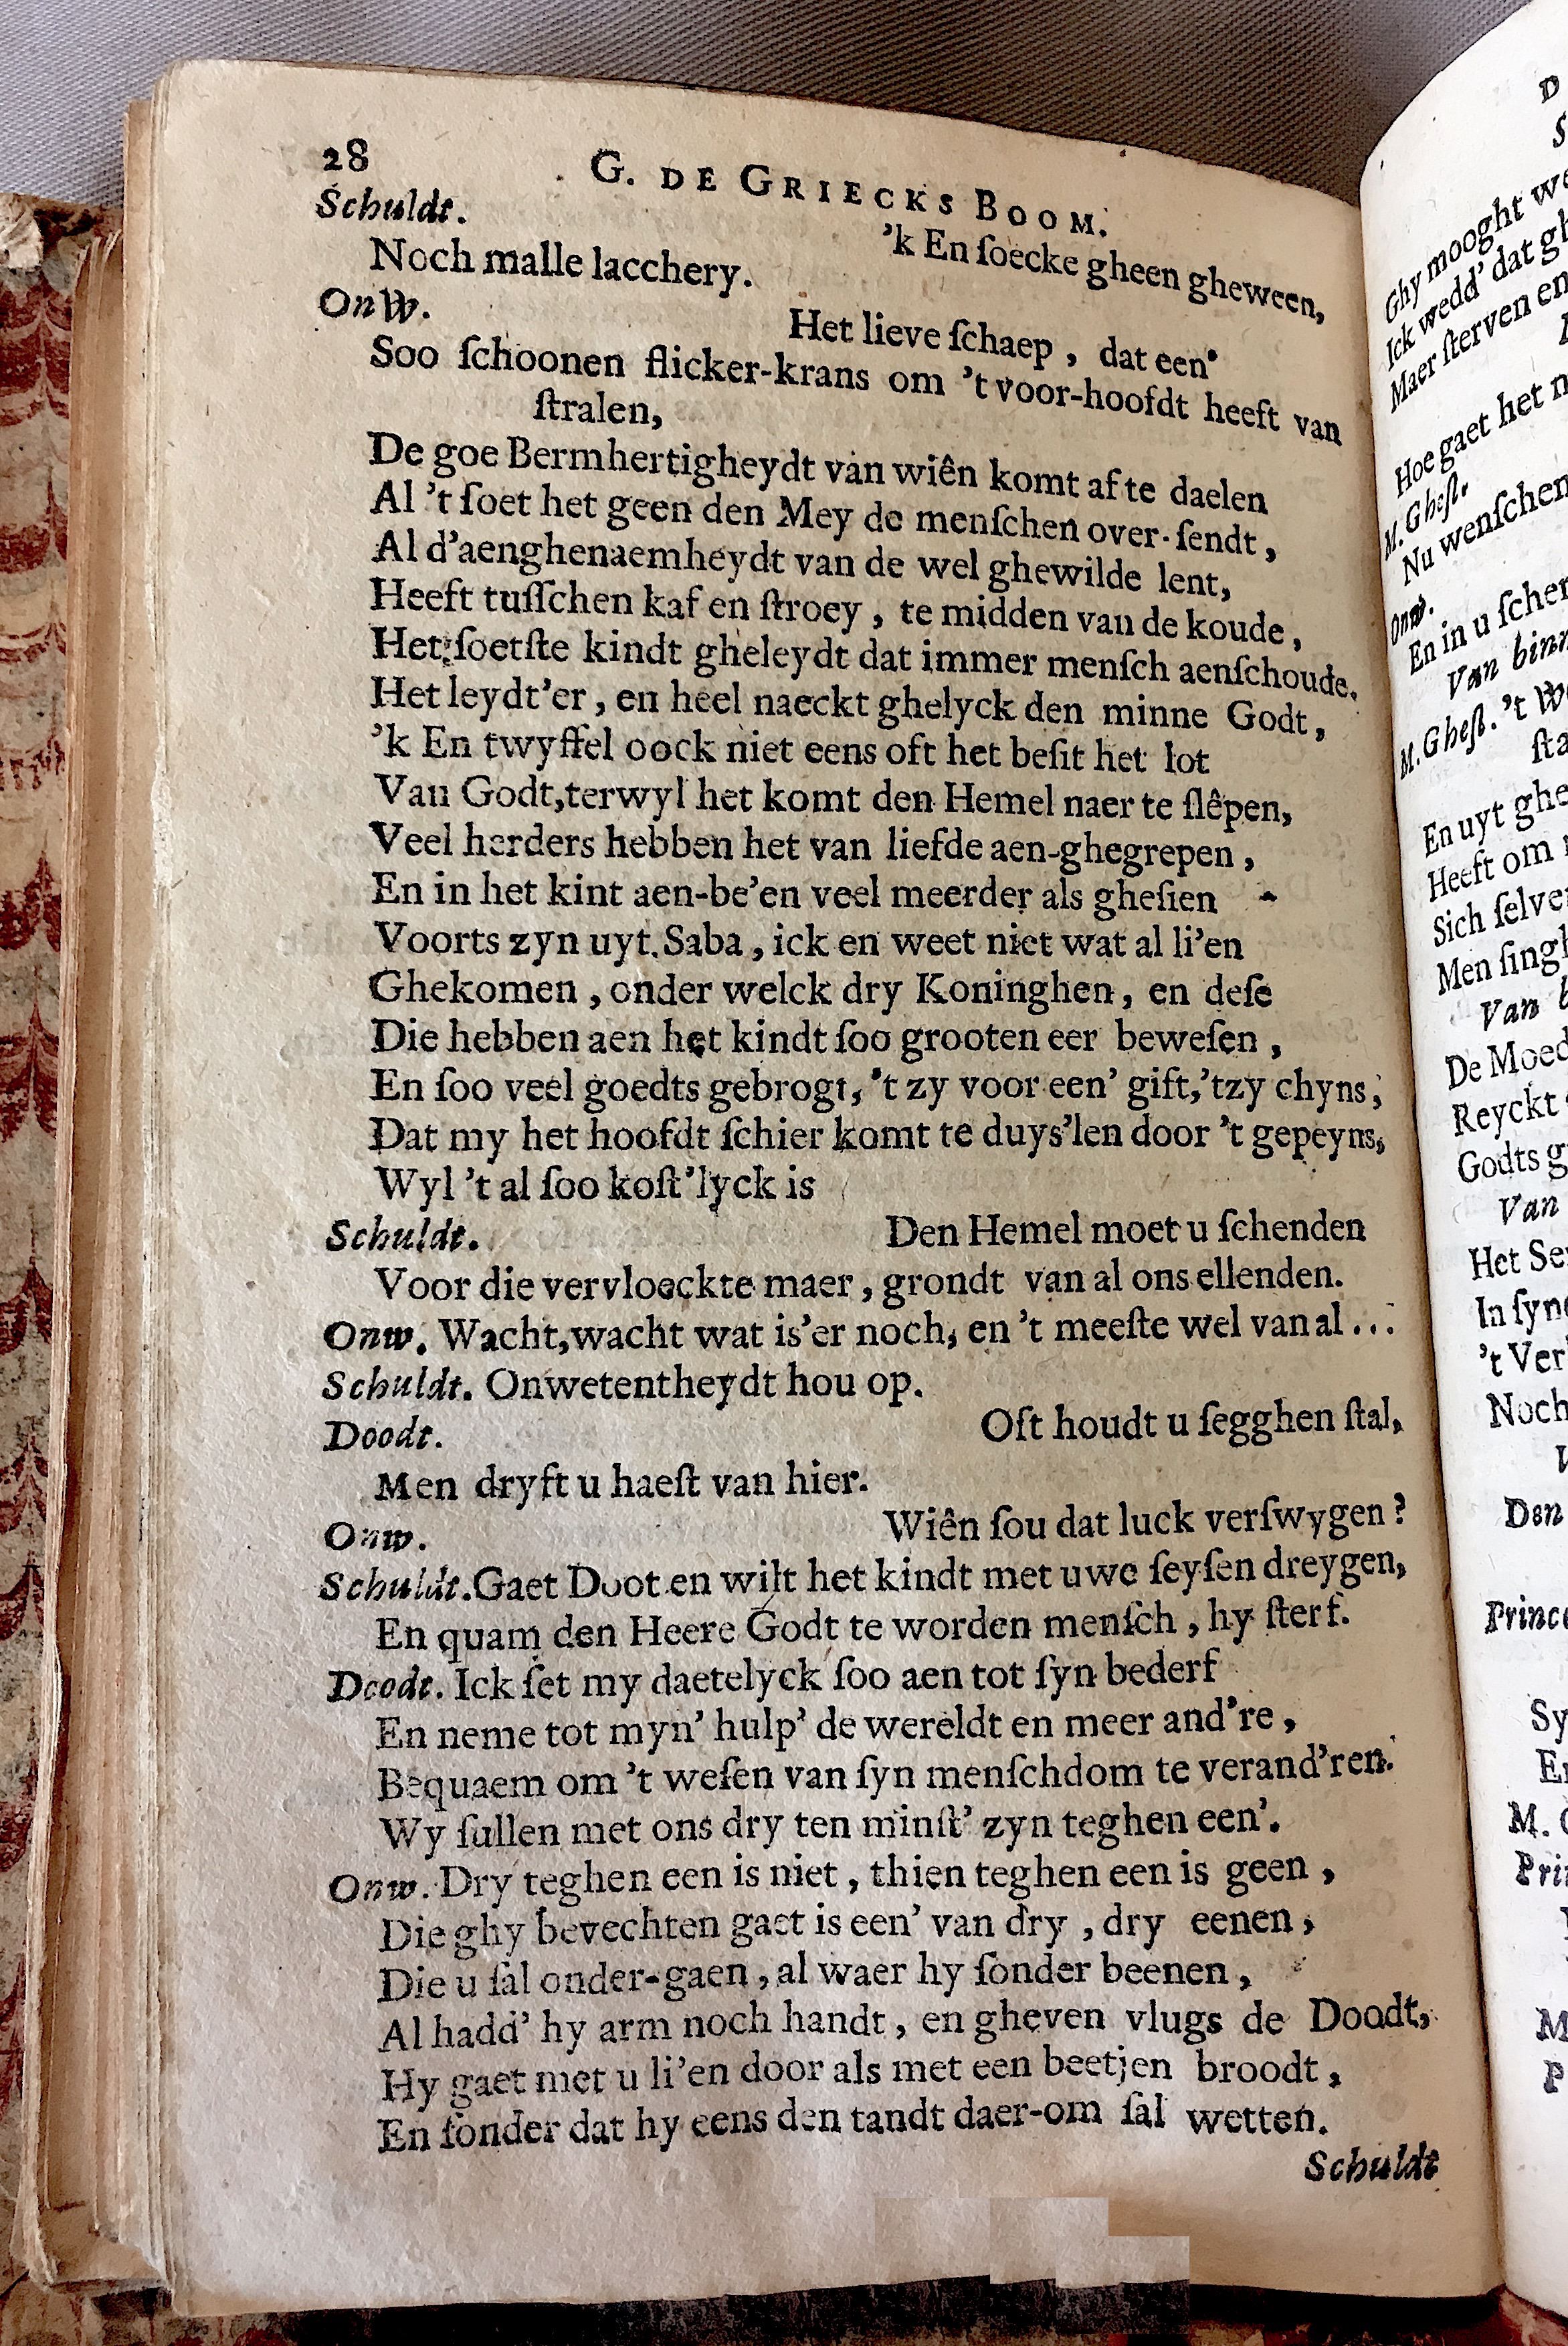 28 G. DE GRIECKS BOOM.
Schuldt. 'k En ſoecke gheen gheween,
Noch malle lacchery.
Onw. Het lieve ſchaep, dat een'
Soo ſchoonen flicker-krans om 't voor-hoofdt heeft van
ſtralen,
De goe Bermhertigheydt van wiên komt af te daelen
Al 't ſoet het geen den Mey de menſchen over-ſendt,
Al d'aenghenaemheydt van de wel ghewilde lent,
Heeft tuſſchen kaf en ſtroey, te midden van de koude,
Het ſoetſte kindt gheleydt dat immer menſch aenſchoude.
Het leydt'er, en heel naeckt ghelyck den minne Godt,
'k En twyffel oock niet eens oft het beſit het lot
Van Godt, terwyl het komt den Hemel naer te ſlêpen,
Veel herders hebben het van liefde aen-ghegrepen,
En in het kint aen-be'en veel meerder als gheſien
Voorts zyn uyt Saba, ick en weet niet wat al li'en
Ghekomen, onder welck dry Koninghen, en deſe
Die hebben aen het kindt ſoo grooten eer beweſen,
En ſoo veel goedts gebrogt, 't zy voor een' gift, 'tzy chyns,
Dat my het hoofdt ſchier komt te duys'len door 't gepeyns,
Wyl 't al ſoo koſt'lyck is
Schuldt. Den Hemel moet u ſchenden
Voor die vervloeckte maer, grondt van al ons ellenden.
Onw. Wacht, wacht wat is'er noch, en 't meeſte wel van al...
Schuldt. Onwetentheydt hou op.
Doodt. Oft houdt u ſegghen ſtal,
Men dryft u haeſt van hier.
Onw. Wiên ſou dat luck verſwygen?
Schuldt. Gaet Doot en wilt het kindt met uwe ſeyſen dreygen,
En quam den Heere Godt te worden menſch, hy ſterf.
Doodt. Ick ſet my daetelyck ſoo aen tot ſyn bederf
En neme tot myn' hulp' de wereldt en meer and're,
Bequaem om 't weſen van ſyn menſchdom te verand'ren.
Wy ſullen met ons dry ten minſt' zyn teghen een'.
Onw. Dry teghen een is niet, thien teghen een is geen,
Die ghy bevechten gaet is een' van dry, dry eenen,
Die u ſal onder-gaen, al waer hy ſonder beenen,
Al hadd' hy arm noch handt, en gheven vlugs de Doodt,
Hy gaet met u li'en door als met een beetjen broodt,
En ſonder dat hy eens den tandt daer-om ſal wetten.
Schuldt
D
S
Ghy mooght we
Ick wedd' dat gh
Maer ſterven en
Hoe gaet het n
M. Gheſt.
Nu wenſchen
Onw.
En in u ſcher
Van binn
M. Gheſt. 't W
ſta
En uyt ghe
Heeft om
Sich ſelve
Men ſingh
Van b
De Moed
Reyckt
Godts g
Van
Het Se
In ſyn
't Ver
Noch
Den
Prince
Sy
E
M.
Pri
M
P